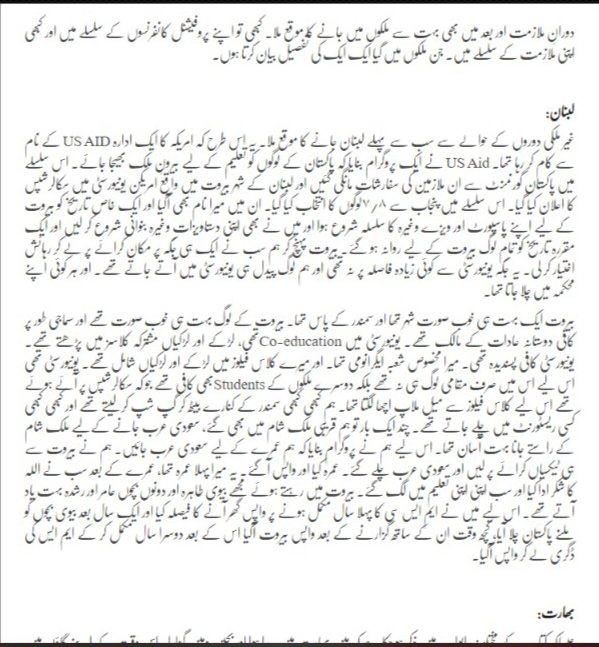 دوران ملازمت اور بعد میں بھی بہت سے ملکوں میں جانے کا موقع ملا۔ کبھی تو اپنے پروفیشنل کانفرنسوں کے سلسلے میں اور کبھی
اپنی ملازمت کے سلسلے میں۔ جن ملکوں میں گیا ایک ایک کی تفصیل بیان کرتا ہوں۔
لبنان:
غیر ملکی دوروں کے حوالے سے سب سے پہلے لبنان جانے کا موقع ملا۔ یہ اس طرح کہ امریکہ کا ایک ادارہ US AID کے نام
سے کام کر رہا تھا۔ US Aid نے ایک پروگرام بنایا کہ پاکستان کے لوگوں کو تعلیم کے لیے بیرون ملک بھیجا جائے۔ اس سلسلے
میں پاکستان گورنمنٹ سے ان ملازمین کی سفارشات مانگی گئیں اور لبنان کے شہر بیروت میں واقع امریکن یونیورسٹی میں سکالرشپس
کا اعلان کیا گیا۔ اس سلسلے میں پنجاب سے ۷/۸ لوگوں کا انتخاب کیا گیا۔ ان میں میرا نام بھی آگیا اور ایک خاص تاریخ کو بیروت
کے لیے اپنے پاسپورٹ اور ویزے وغیرہ کا سلسلہ شروع ہوا اور میں نے بھی اپنی دستاویزات وغیرہ بنوانی شروع کر لیں اور ایک
مقررہ تاریخ کو تمام لوگ بیروت کے لیے روانہ ہو گئے۔ بیروت پہنچ کر ہم سب نے ایک ہی جگہ پر مکان کرائے پر لے کر رہائش
اختیار کر لی۔ یہ جگہ یونیورسٹی سے کوئی زیادہ فاصلہ پر نہ تھی اور ہم لوگ پیدل ہی یونیورسٹی میں آتے جاتے تھے۔ اور ہر کوئی اپنے
محکمہ میں چلا جاتا تھا۔
بیروت ایک بہت ہی خوب صورت شہر تھا اور سمندر کے پاس تھا۔ بیروت کے لوگ بہت ہی خوب صورت تھے اور سماجی طور پر
کافی دوستانہ عادات کے مالک تھے۔ یونیورسٹی میں Co-education تھی، لڑکے اور لڑکیاں مشترکہ کلاسز میں پڑھتے تھے۔
یونیورسٹی کافی پسندیدہ تھی۔ میرا مخصوص شعبہ ایگرانومی تھا۔ اور میرے کلاس فیلوز میں لڑکے اور لڑکیاں شامل تھے۔ یونیورسٹی تھی
اس لیے اس میں صرف مقامی لوگ ہی نہ تھے بلکہ دوسرے ملکوں کے Students بھی کافی تھے جو کہ سکالرشپس پر آئے ہوئے
تھے اس لیے کلاس فیلوز سے میل ملاپ اچھا لگتا تھا۔ ہم کبھی کبھی سمندر کے کنارے بیٹھ کر گپ شپ کر لیتے تھے اور کبھی کبھی
کسی ریسٹورنٹ میں چلے جاتے تھے۔ چند ایک بار تو ہم قریبی ملک شام میں بھی گئے، سعودی عرب جانے کے لیے ملک شام
کے راستے جانا بہت آسان تھا۔ اس لیے ہم نے پروگرام بنایا کہ ہم عمرے کے لیے سعودی عرب جائیں۔ ہم نے بیروت سے
ہی ٹیکسیاں کرائے پر لیں اور سعودی عرب چلے گئے۔ عمرہ کیا اور واپس آگئے۔ یہ میرا پہلا عمرہ تھا، عمرے کے بعد سب نے اللہ
کا شکر ادا کیا اور سب اپنی اپنی تعلیم میں لگ گئے۔ بیروت میں رہتے ہوئے مجھے بیوی طاہرہ اور دونوں بچوں عامر اور رشدہ بہت یاد
آتے تھے۔ اس لیے میں نے ایم ایس سی کا پہلا سال مکمل ہونے پر واپس گھر آنے کا فیصلہ کیا اور ایک سال بعد بیوی بچوں کو
ملنے پاکستان چلا آیا، کچھ وقت ان کے ساتھ گزارنے کے بعد واپس بیروت آگیا اس کے بعد دوسرا سال مکمل کر کے ایم ایس کی
ڈگری لے کر واپس آگیا۔
بھارت: